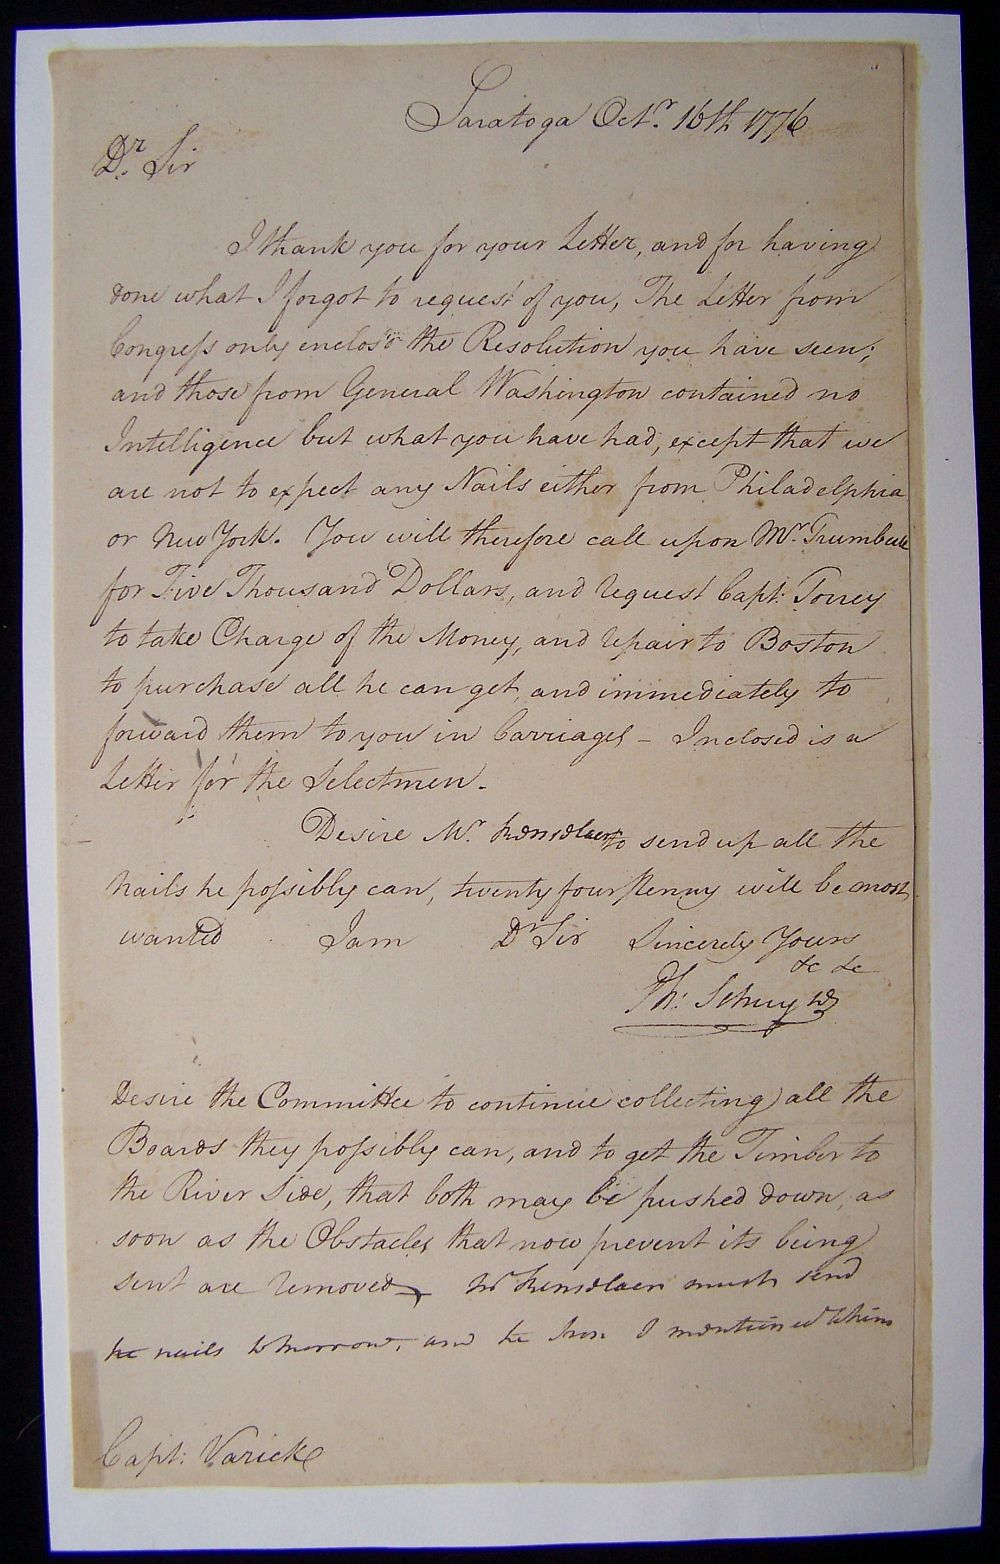 Saratoga Octr. 16th 1776
Dr. Sir
I thank you for your Letter, and for having
done what I forgot to request of you, The Letter from
Congress only enclos'd the Resolution you have seen;
and those from General Washington contained no
Intelligence but what you have had, except that we
are not to expect any Nails either from Philadelphia
or New York. You will therefore call upon Mr. Trumbull
for Five Thousand Dollars, and request Capt: Torrey
to take Charge of the Money, and repair to Boston
to purchase all he can get, and immediately to
forward them to you in Carriages – Inclosed is a
Letter for the Selectmen.
Desire Mr. Renselaer to send up all the
Nails he possibly can, twenty four penny will be most
wanted I am Dr Sir Sincerely Yours
&c &c
Ph: Schuyler
Desire the Committee to continue collecting all the
Boards they possibly can, and to get the Timber to
the River Side, that both may be pushed down, as
soon as the Obstacles that now prevent its being
sent are removed, Mr Renselaer must send
he nails to morrow, and he Iron I mentioned to him
Capt: Varick